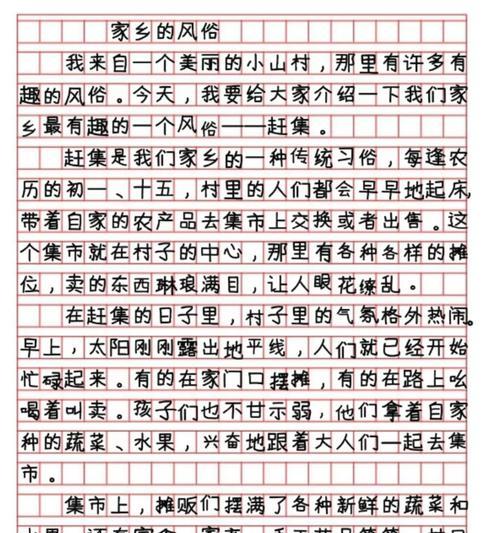 家乡的风俗
我来自一个美丽的小山村，那里有许多有
趣的风俗。今天，我要给大家介绍一下我们家
乡最有趣的一个风俗——赶集。
赶集是我们家乡的一种传统习俗，每逢农
历的初一、十五，村里的人们都会早早地起床，
带着自家的农产品去集市上交换或者出售。这
个集市就在村子的中心，那里有各种各样的摊
位，卖的东西琳琅满目，让人眼花缭乱。
在赶集的日子里，村子里的气氛格外热闹。
早上，太阳刚刚露出地平线，人们就已经开始
忙碌起来。有的在家门口摆摊，有的在路上吆
喝着叫卖。孩子们也不甘示弱，他们拿着自家
种的蔬菜、水果，兴奋地跟着大人们一起去集
市。
集市上，摊贩们摆满了各种新鲜的蔬菜和